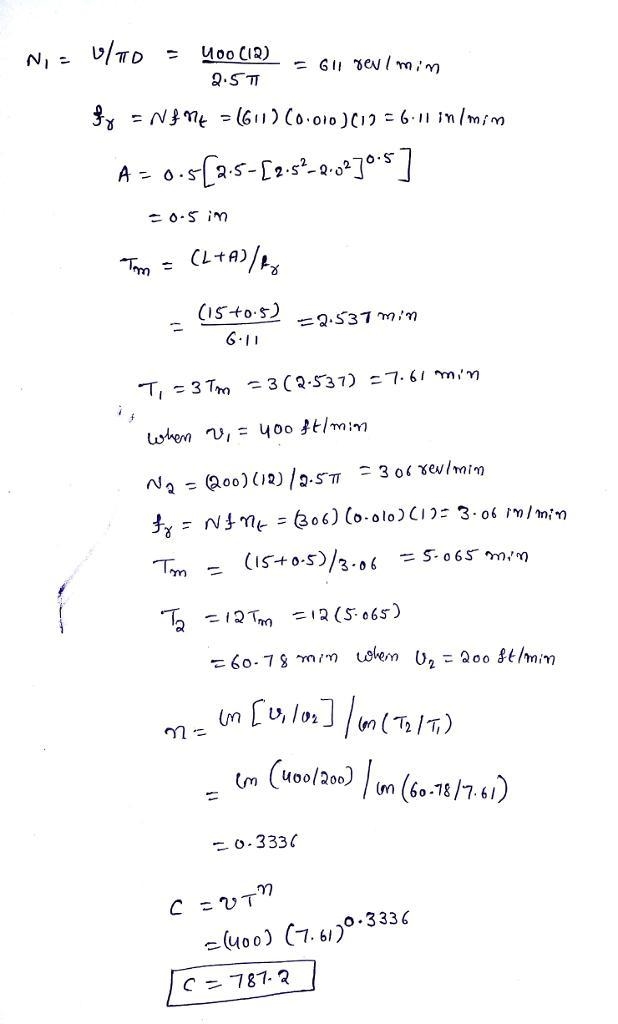 N₁ = υ/πD = 400(12)/2.5π = 611 rev/min
fᵣ = Nfnₜ = (611)(0.010)(1) = 6.11 in/min
A = 0.5[2.5-[2.5²-2.0²]0.5]
= 0.5 in
Tm = (L+A)/fᵣ
= (15+0.5)/6.11 = 2.537 min
T₁ = 3Tm = 3(2.537) = 7.61 min
when υ₁ = 400 ft/min
N₂ = (200)(12)/2.5π = 306 rev/min
fᵣ = Nfnₜ = (306)(0.010)(1) = 3.06 in/min
Tm = (15+0.5)/3.06 = 5.065 min
T₂ = 12Tm = 12(5.065)
= 60.78 min when υ₂ = 200 ft/min
n = ln[υ₁/υ₂]/ln(T₂/T₁)
= ln(400/200)/ln(60.78/7.61)
= 0.3336
C = υTⁿ
= (400)(7.61)^0.3336
C = 787.2